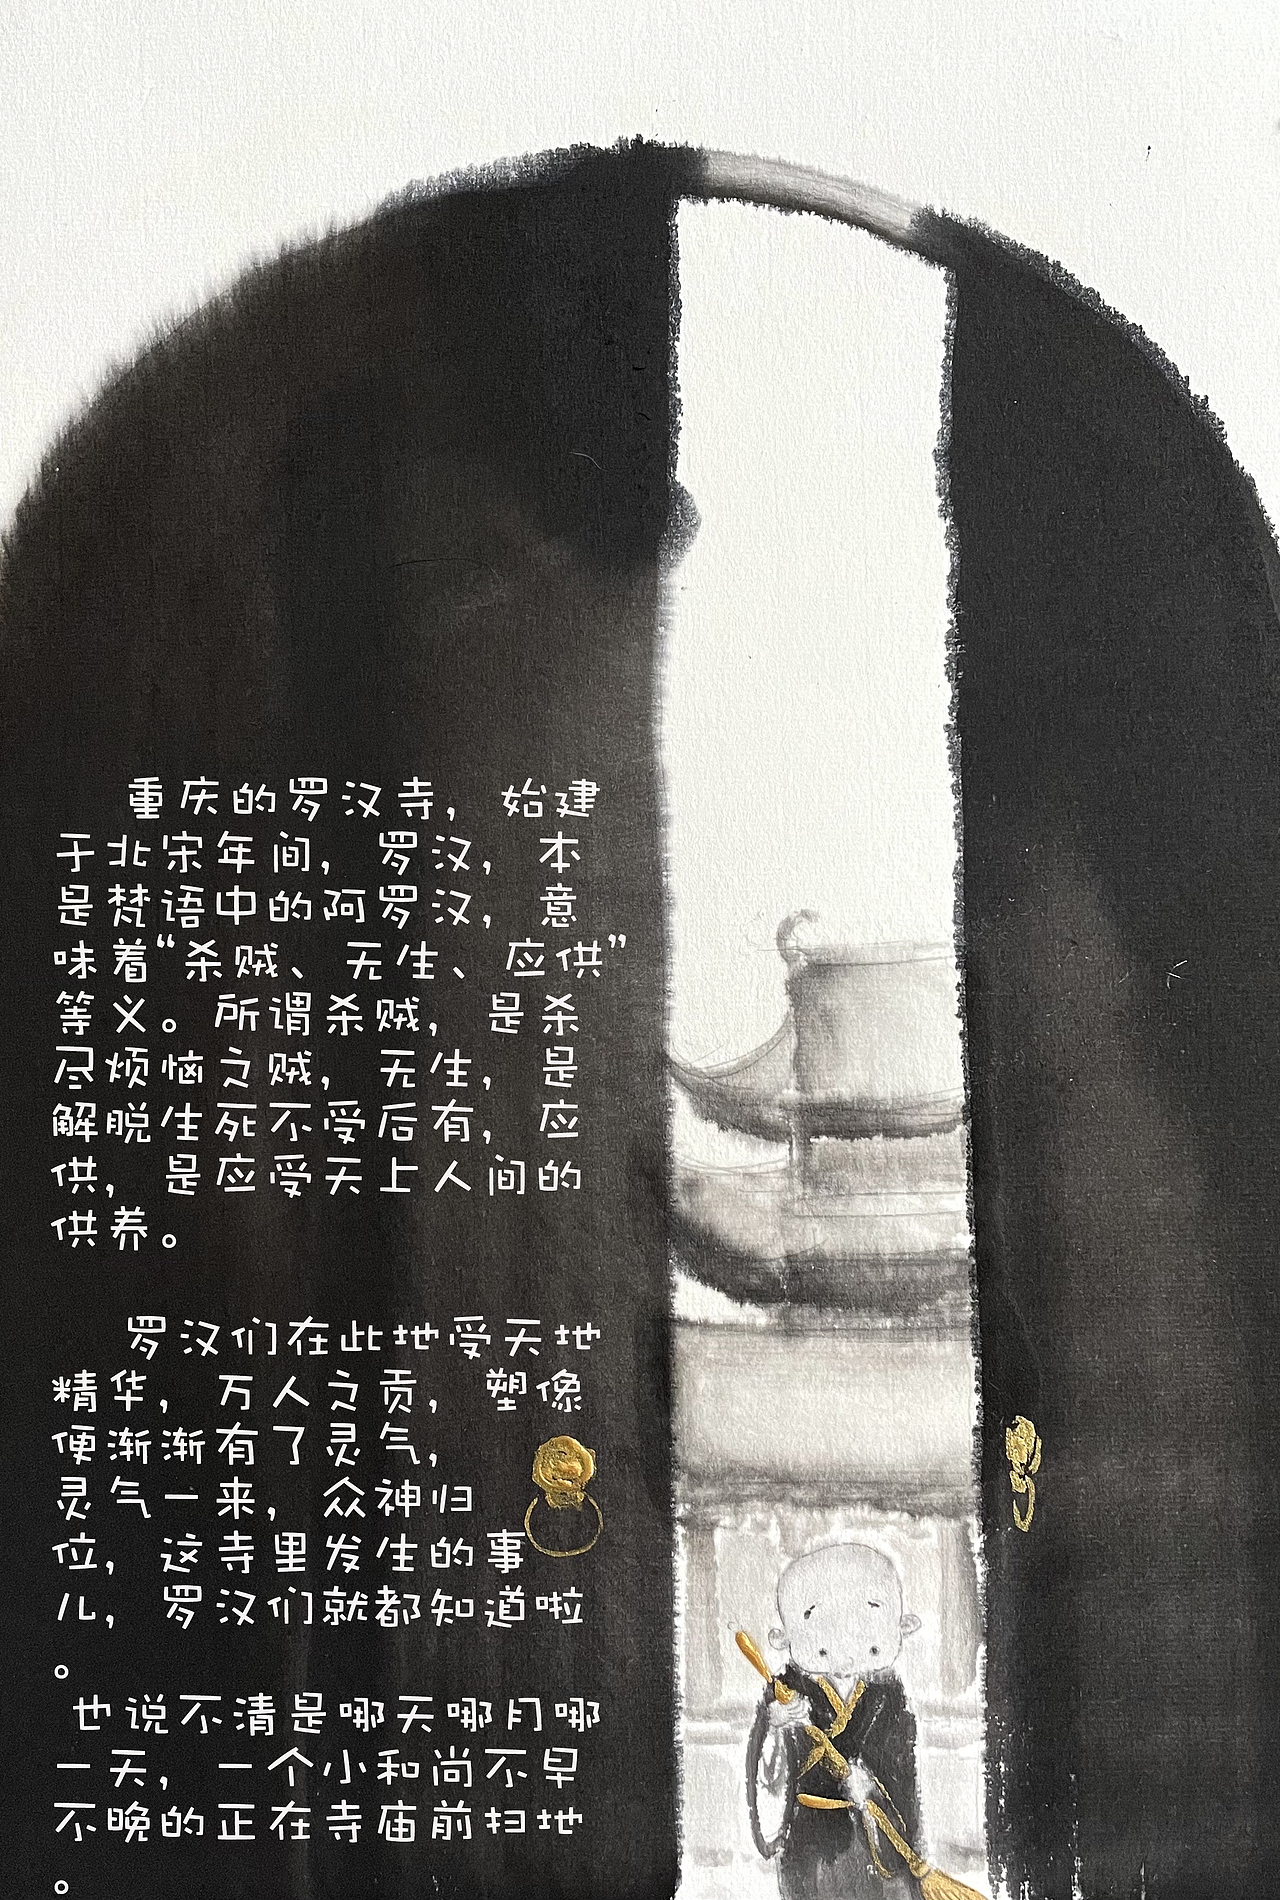 重庆的罗汉寺，始建
于北宋年间，罗汉，本
是梵语中的阿罗汉，意
味着“杀贼、无生、应供”
等义。所谓杀贼，是杀
尽烦恼之贼，无生，是
解脱生死不受后有，应
供，是应受天上人间的
供养。
罗汉们在此地受天地
精华，万人之贡，塑像
便渐渐有了灵气，
灵气一来，众神归
位，这寺里发生的事
儿，罗汉们就都知道啦
。
也说不清是哪天哪月哪
一天，一个小和尚不早
不晚的正在寺庙前扫地
。